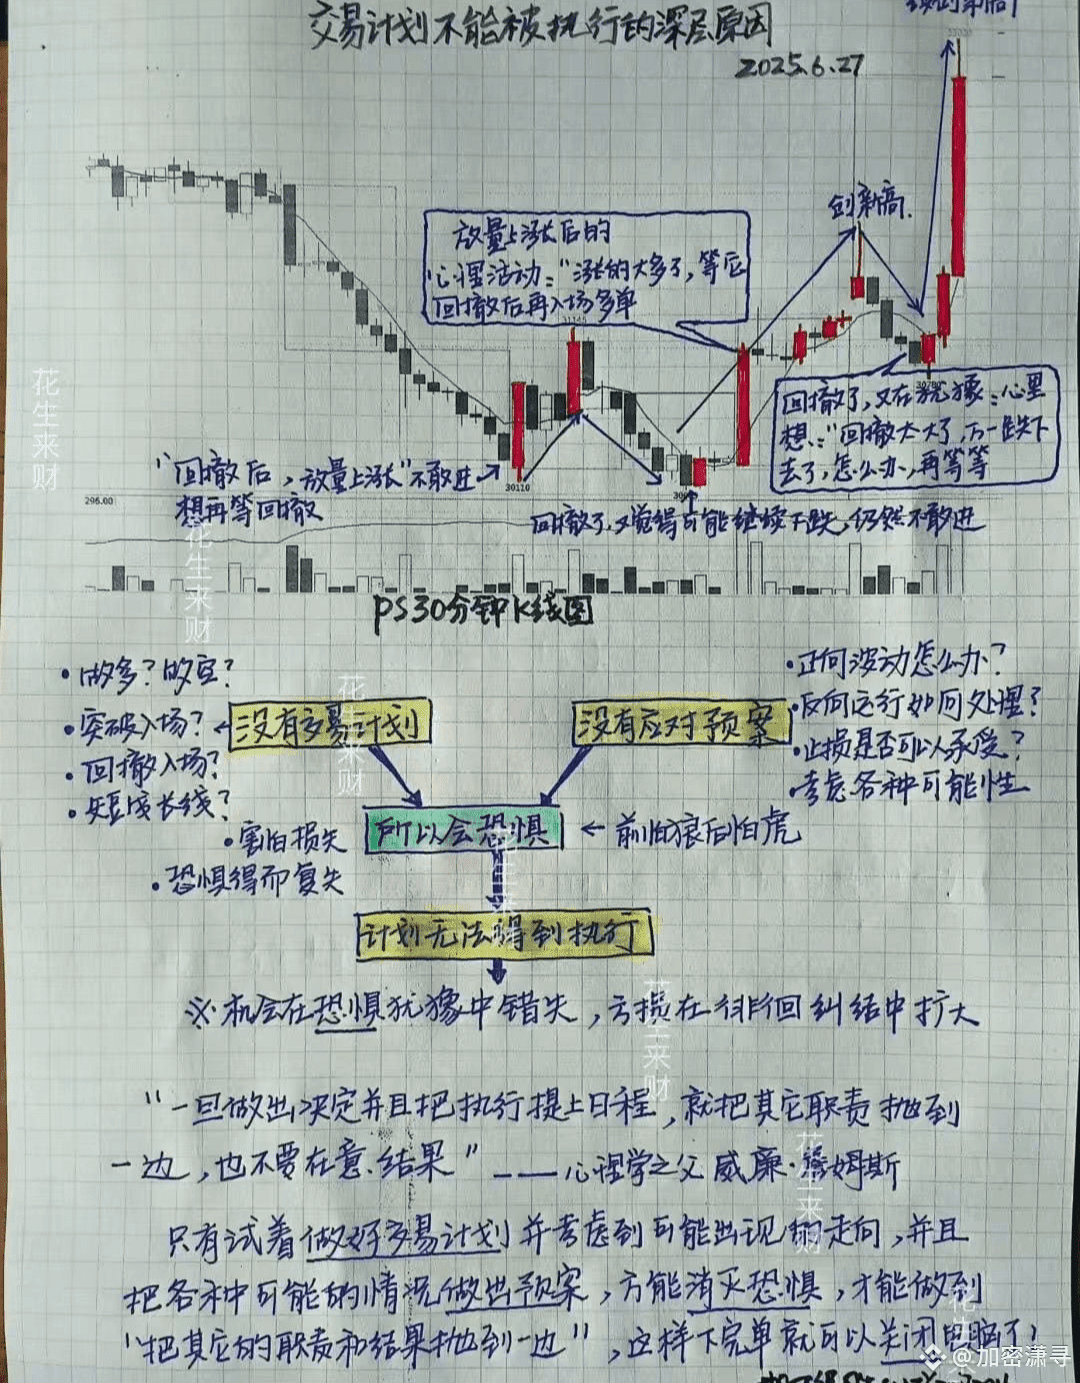 交易计划不能被执行的深层原因
2025.6.27
创新高.
放量上涨后的
心理活动:“涨的太多了,等它
回撤后再入场多单
31140
回撤了,又在犹豫:心里
想:“回撤太大了,万一跌下
去了,怎么办,再等等
30780
“回撤后,放量上涨”不敢进
想再等回撤
30110
296.00
回撤了,又觉得可能继续下跌,仍然不敢进
PS30分钟K线图
·做多?做空?
·突破入场?
·回撤入场?
·短线长线?
没有交易计划
没有应对预案
·正向波动怎么办?
·反向运行如何处理?
·止损是否可以承受?
·考虑各种可能性
·害怕损失
·恐惧得而复失
所以会恐惧
←前怕狼后怕虎
计划无法得到执行
※机会在恐惧犹豫中错失,亏损在徘徊纠结中扩大
“一旦做出决定并且把执行提上日程,就把其它职责抛到
一边,也不要在意结果”——心理学之父威廉·詹姆斯
只有试着做好交易计划并考虑到可能出现的走向,并且
把各种可能的情况做出预案,方能消灭恐惧,才能做到
“把其它的职责和结果抛到一边”,这样下完单就可以关闭电脑了!
花生来财
花生来财
花生来财
花生来财
花生来财
@加密潇寻